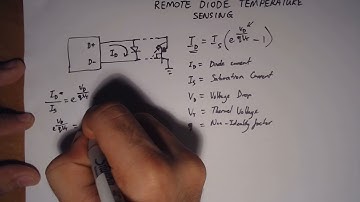 REMOTE DIODE TEMPERATURE
SENSING
D+
D-
I_D
I_D = I_S ( e^(V_D/ηV_T) - 1 )
I_D = Diode current
I_S = Saturation Current
V_D = Voltage Drop
V_T = Thermal Voltage
η = Non-Ideality factor
I_D/I_S = e^(V_D/ηV_T)
e^(V_D/ηV_T) =